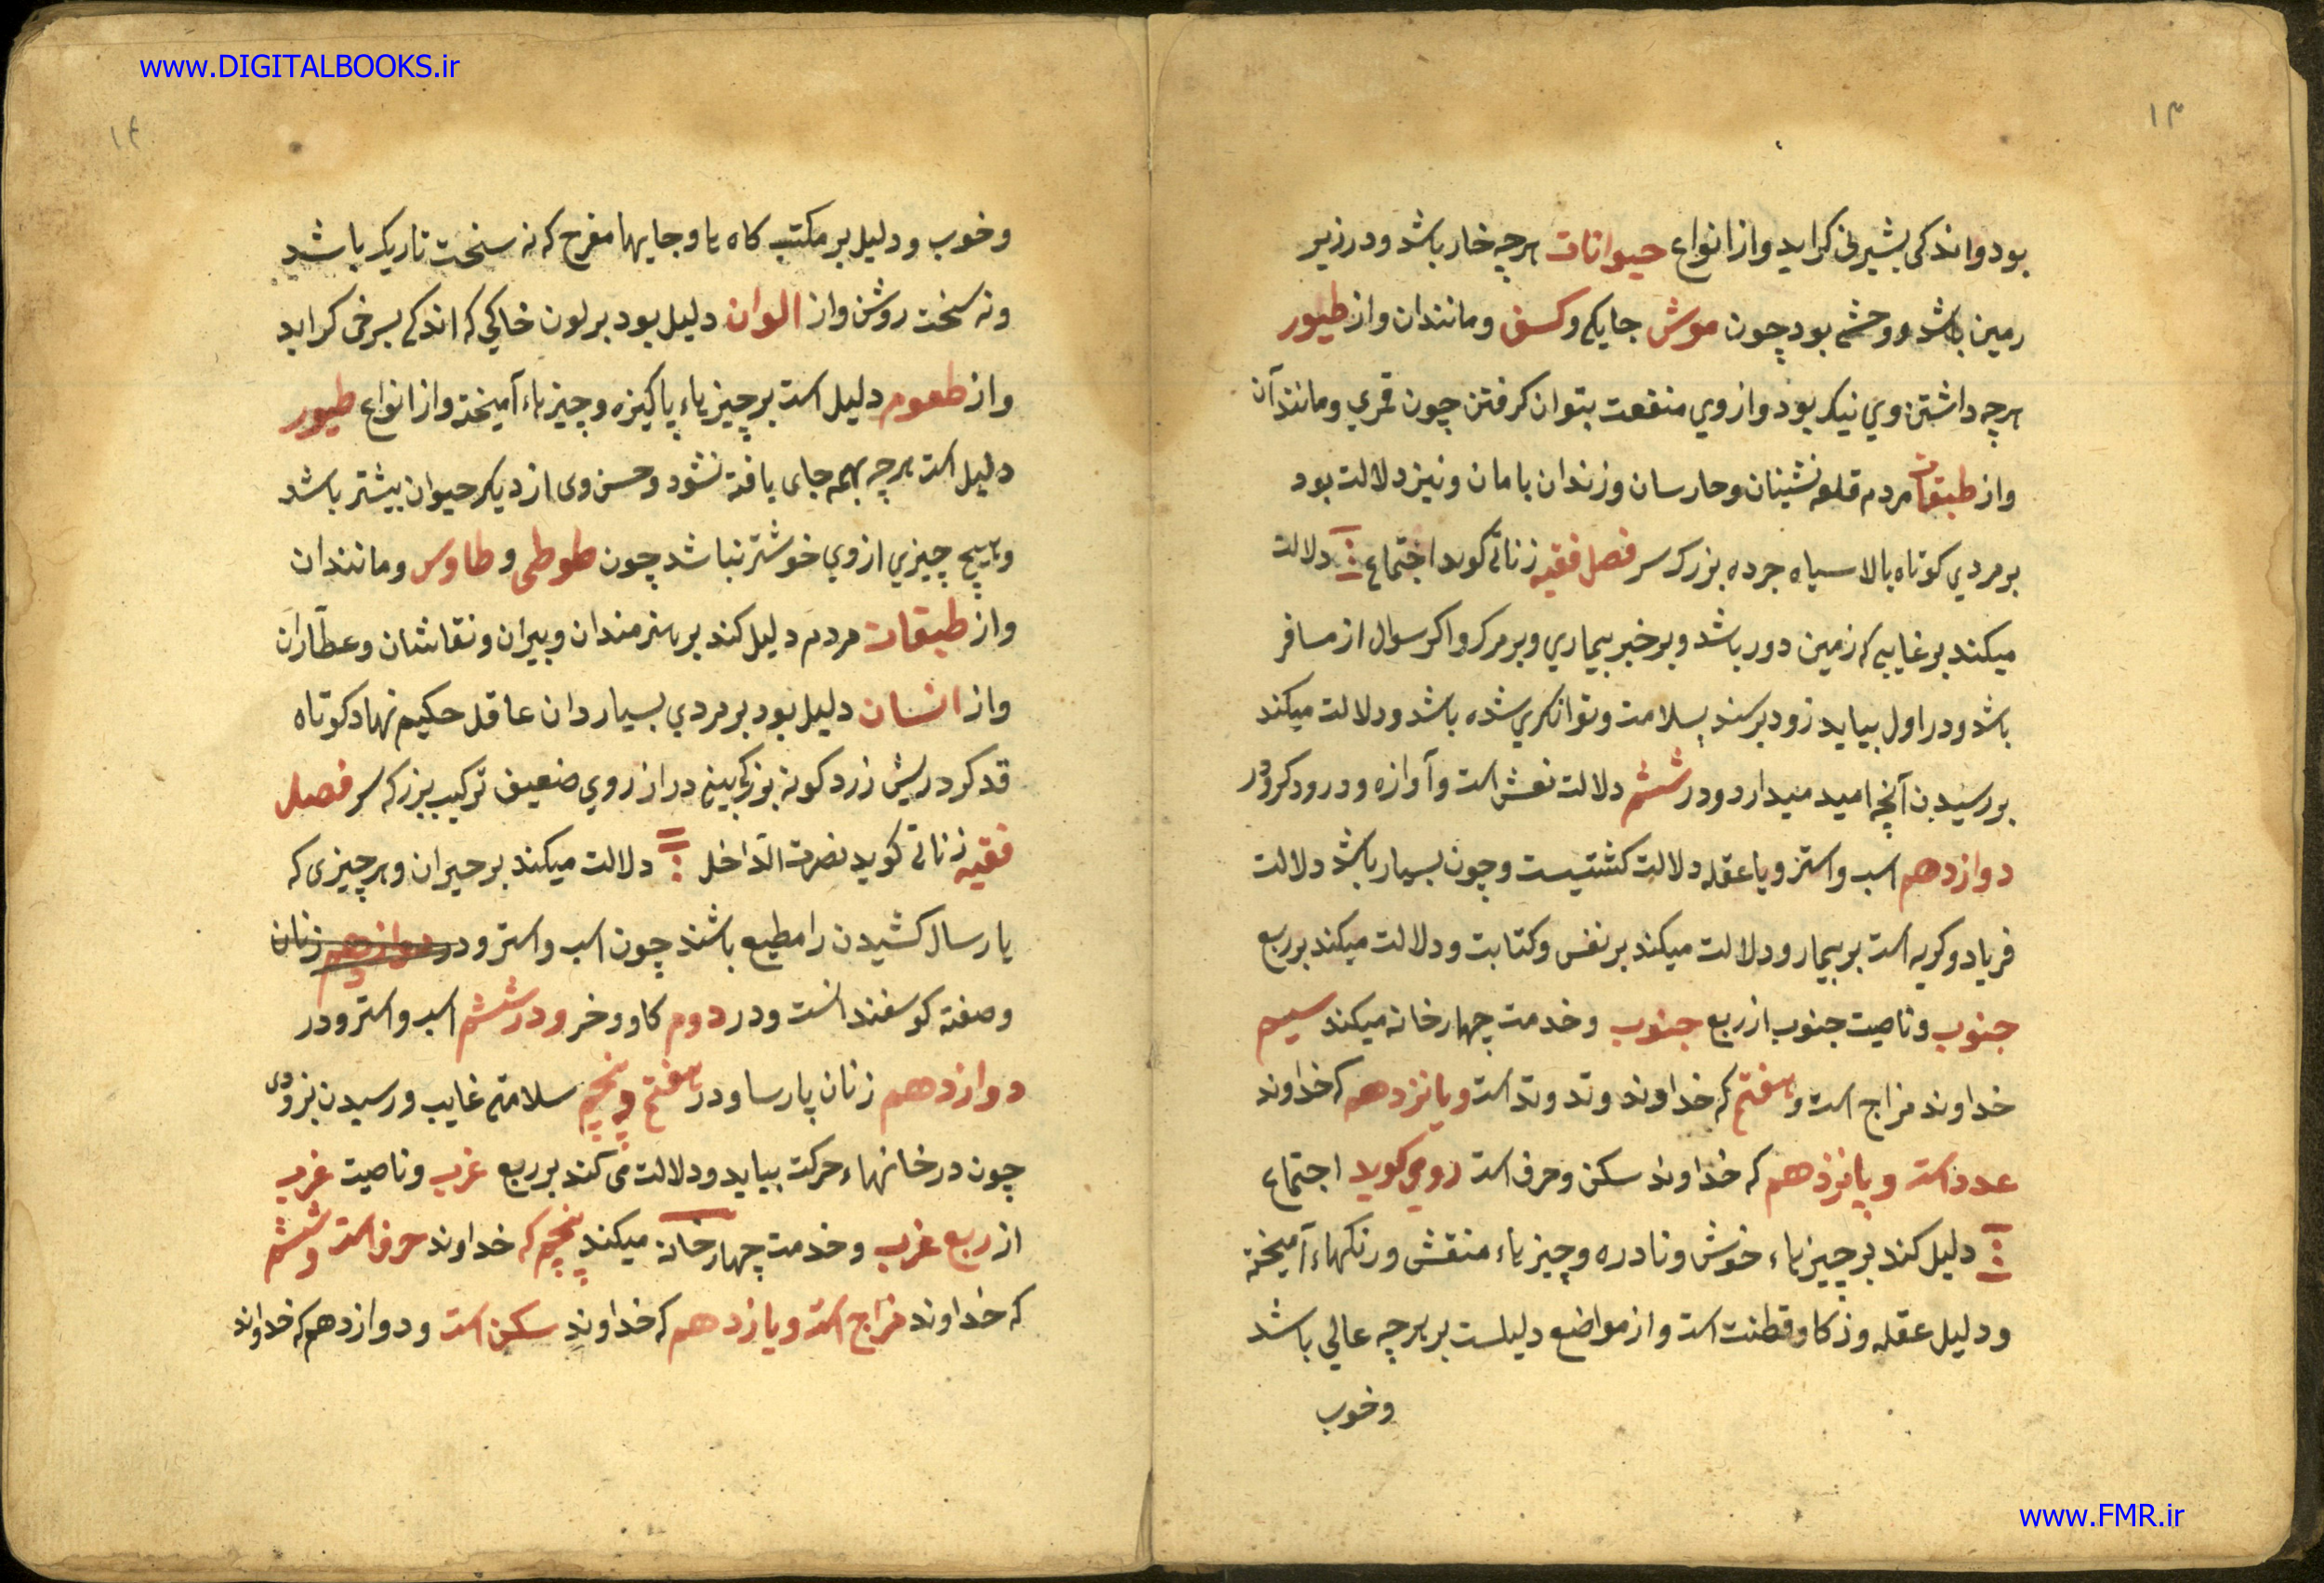 www.DIGITALBOOKS.ir
۱۳
بود و اندکی بشیرینی کراید و از انواع حیوانات هرچه خار باشد و در زیر
زمین باشد و وحشی بود چون موش جایکی و کسف و مانندان و از طیور
هرچه داشتن وی نیکر بود و از وی منفعت بتوان کرفتن چون قمری و مانند آن
و از طبقات مردم قلعه نشینان و حارسان و زندان بامان و نیز دلالت بود
بر مردی کوتاه بالا سیاه جرده بزرک سر فصل فقیه زناتی کوید اجتماع دلالت
میکند بر غایبی که زمین دور باشد و بر خبر بیماری و بر مرک و اکر سوال از مسافر
باشد و در اول بیاید زود برسند بسلامت و توانکری شده باشد و دلالت میکند
بر رسیدن آنچه امید میدارد و در ششم دلالت نعش است و آوازه و درود کر و در
دوازدهم اسب و استر و با عقله دلالت کشتیست و چون بسیار باشد دلالت
فریاد و کریه است بر بیمار و دلالت میکند بر نفس و کتابت و دلالت میکند بر ربع
جنوب و ناصیت جنوب از ربع جنوب و خدمت چهار خانه میکند سیم
خداوند مزاج است و هفتم که خداوند وتد وتد است و یانزدهم که خداوند
عدد است و پانزدهم که خداوند سکن و حرف است رومی کوید اجتماع
دلیل کند بر چیزهاء خوش و نادره و چیزهاء منقش و رنکهاء آمیخته
و دلیل عقله و زکا و قطنت است و از مواضع دلیلست بر هرچه عالی باشد
و خوب
۱۴
و خوب و دلیل بر مکتب کاه ها و جایها مفرح که نه سخت تاریک باشد
و نه سخت روشن و از الوان دلیل بود بر لون خاکی که اندکی بسرخی کراید
و از طعوم دلیل است بر چیزهاء پاکیزه و چیزهاء آمیخته و از انواع طیور
دلیل است هرچه بهمه جای یافته نشود و حسن وی از دیکر حیوان بیشتر باشد
و هیچ چیزی از وی خوشتر نباشد چون طوطی و طاوس و مانندان
و از طبقات مردم دلیل کند بر هنرمندان و پیران و نقاشان و عطاران
و از انسان دلیل بود بر مردی بسیار دان عاقل حکیم نهاد کوتاه
قد کرد ریش زرد کونه بزرک بینی دراز روی ضعیف ترکیب بزرکه سر فصل
فقیه زناتی کوید نصرت الداخل دلالت میکند بر حیران و هر چیزی که
یا رسال کشیدن را مطیع باشند چون اسب و استر و در دوازدهم زنان
و صفته کوسفند است و در دوم کاو و خر و در ششم اسب و استر و در
دوازدهم زنان پارسا و در هفتم و پنجم سلامتی غایب و رسیدن بزودی
چون در خانهاء حرکت بیاید و دلالت می کند بر ربع غرب و ناصیت غرب
از ربع غرب و خدمت چهار خانه میکند پنجم که خداوند حرف است و ششم
که خداوند مزاج است و یازدهم که خداوند سکن است و دوازدهم که خداوند
www.FMR.ir